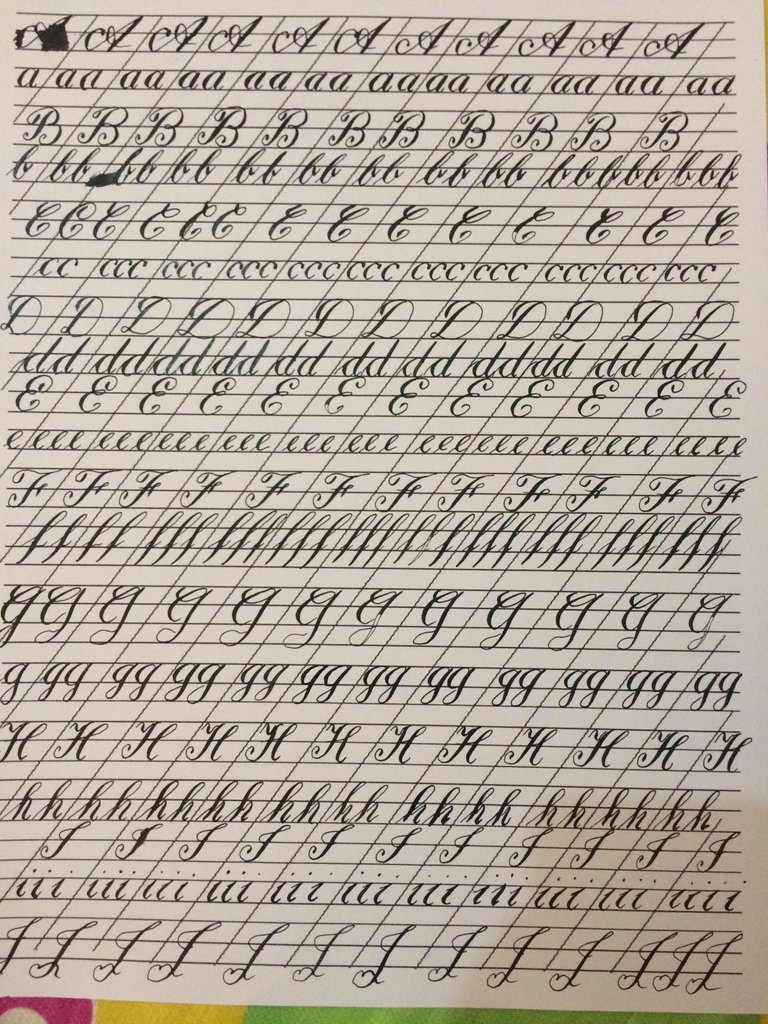 A A A A A A A A A A
a aa aa aa aa aa aaaa aa aa aa aa
B B B B B B B B B B B
b bb bb bb bb bb bb bb bb bbbbbb bbb
C C C C C C C C C C C C C C
cc ccc ccc ccc cccccc ccc ccc cccccc ccc
D D D D D D D D D D D D
dd dddddd dd dd dd dddd dd dd
E E E E E E E E E E E E
e eee eeeeee eee eee eee eeeeee eeeeee eeee
F F F F F F F F F F F F
ffff fff fff fff fff fff fff fff fff fff
G G G G G G G G G G G G
g gg gg gg gg gg gg gg gg gg gg gg
H H H H H H H H H H H H
hh hh hhhh hh hh hh hh hh hh hh
I I I I I I I I I I I
iii iii iii iii iii iii iii iii iii iii iiii
J J J J J J J J J J J J J